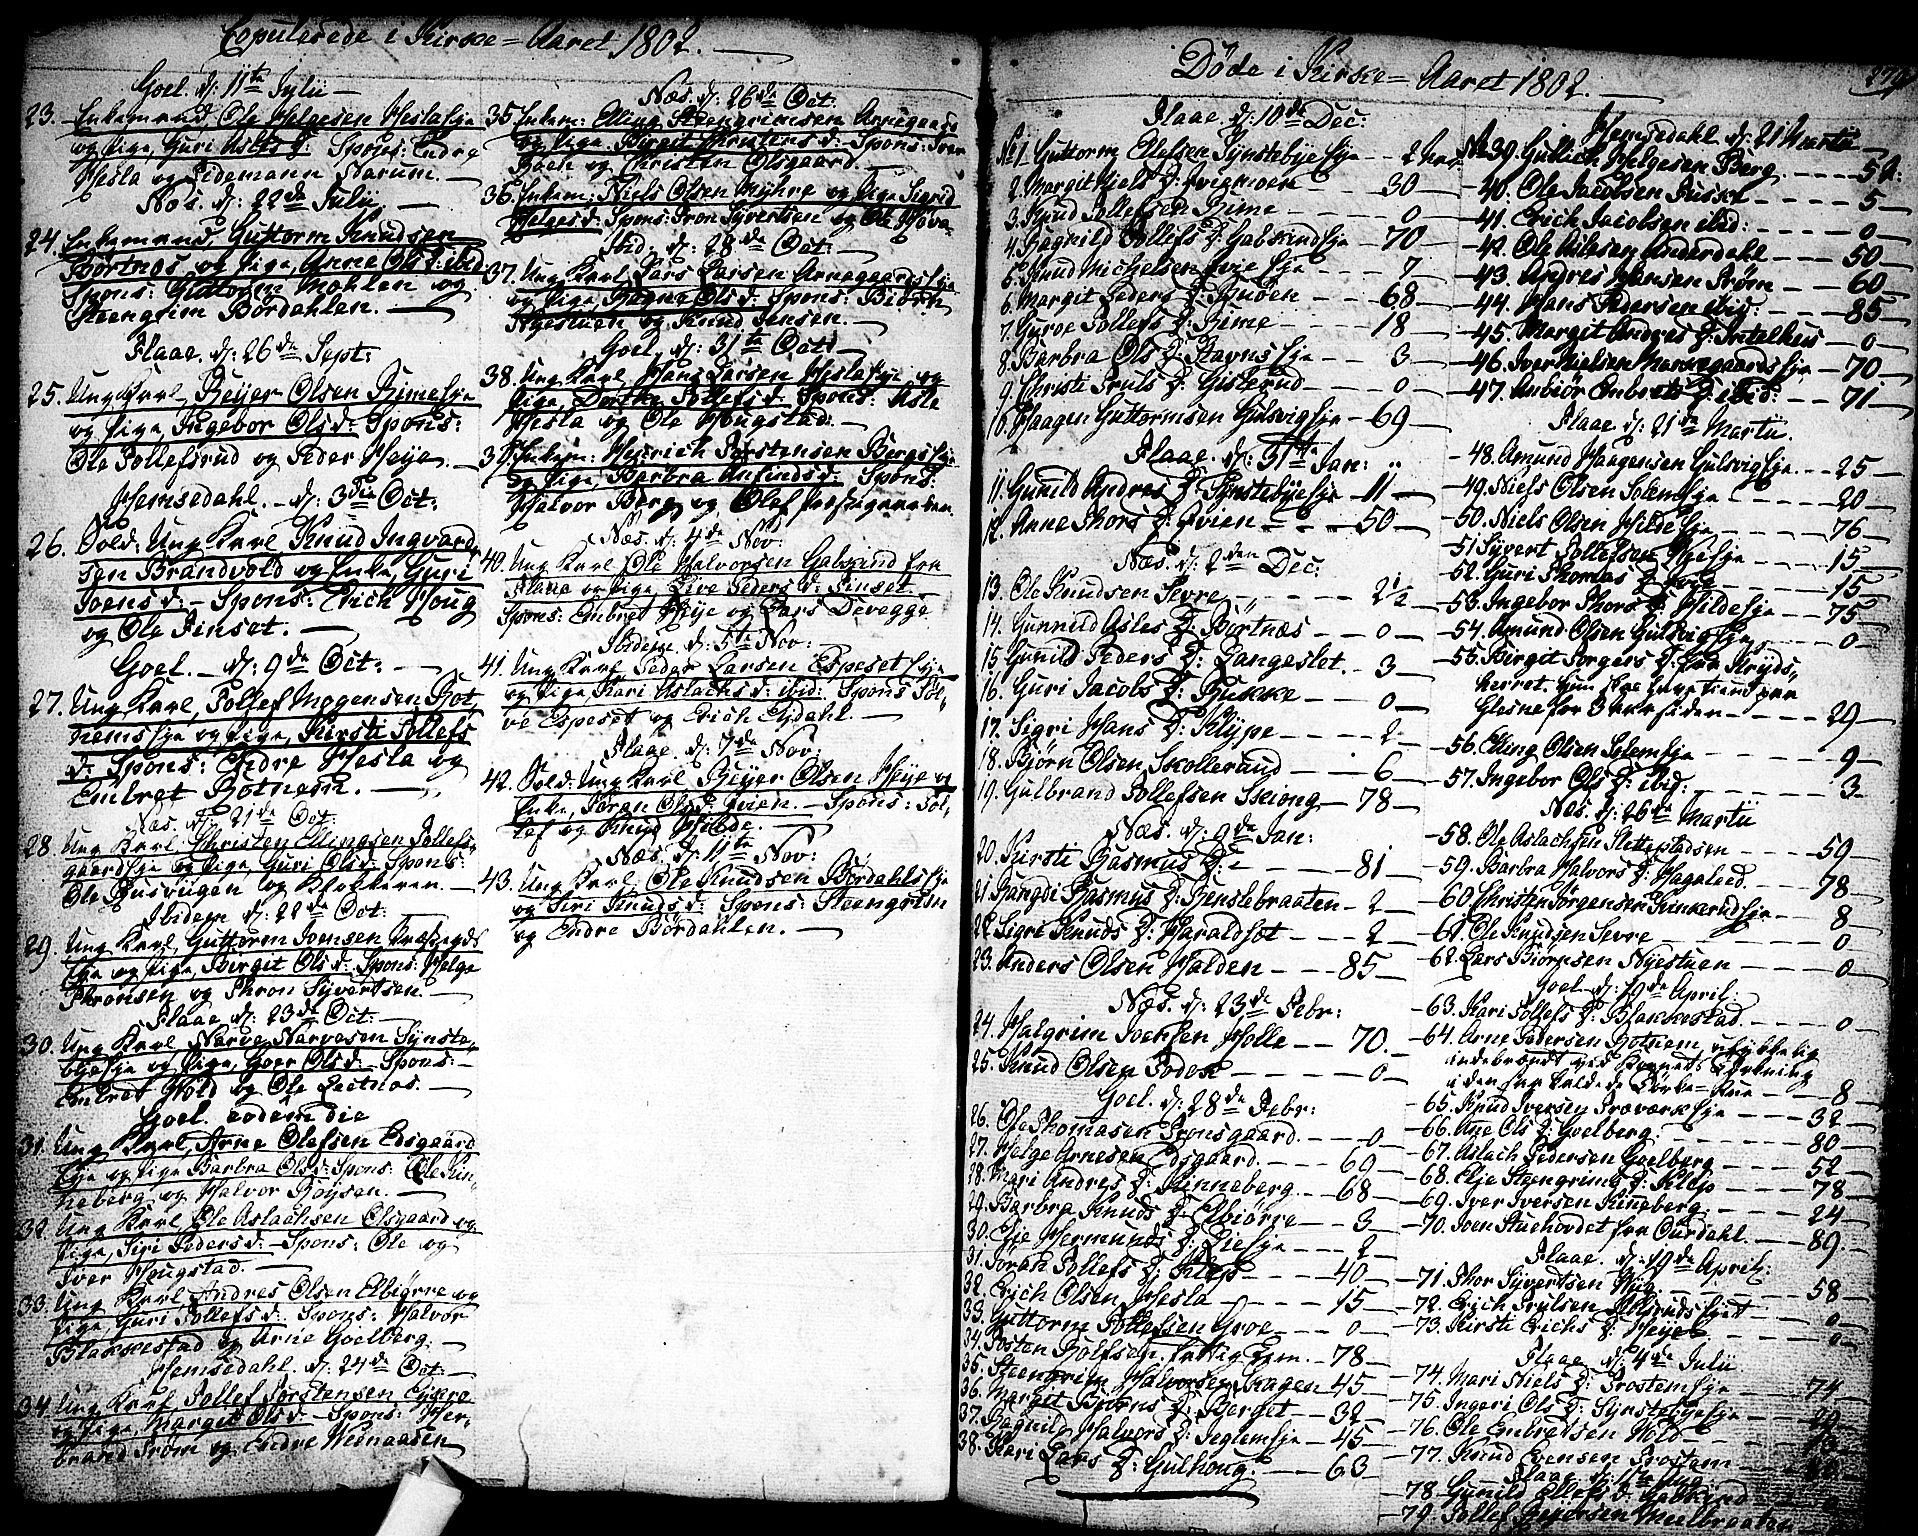 Copulerede i Kirke=Aaret 1802.
Goel. d: 11te Julii
23. Enkemand, Ole Helgesen Heslaeje
og Pige, Guri Asles d: Spons: Endre
Hesla og Tidemann Narum.
Næs. d: 22de Julii
24. Enkemand, Guttorm Knudsen
Børtnæs og Pige, Anne Ols d: ibid
Spons: Guttorm Mæhlen og
Steengrim Børdahlen.
Flaae. d: 26de Sept:
25. Ung Karl, Reyer Olsen Rimeeje
og Pige, Ingebor Ols d: Spons:
Ole Tollefsrud og Peder Heje
Hemsedahl. d: 3die Oct:
26. Sold: Ung Karl Knud Ingvard,,
sen Brandvold og Enke, Guri
Joens d: Spons: Erich Houg
og Ole Finset.
Goel. d: 9de Oct:
27. Ung Karl, Tollef Mogensen Bot,,
nemseje og Pige, Kirsti Tollefs
d: Spons: Endre Hesla og
Embret Botnem.
Næs. d: 21de Oct:
28. Ung Karl, Christen Ellingsen Tollefs,,
gaardseje og Pige, Guri Ols d: Spons:
Ole Busvugen og Klokkeren.
Ibidem d: 22de Oct:
29. Ung Karl, Guttorm Joensen
eje og Pige, Birgit Ols d: Spons: Helge
Thronsen og Thron Syvertsen.
Flaae d: 23de Oct:
30. Ung Karl, Narve Narvesen Synste,,
byeeje og Pige, Goer Ols d: Spons:
Embret Hold og Ole
Goel. eodem die
31. Ung Karl, Arne Olefsen Edsgaard
Eje og Pige Barbra Ols d: Spons: Ole Kin,,
neberg og Halvor Røysen.
32. Ung Karl, Ole Aslachsen Olsgaard og
Pige, Siri Peders d: Spons: Ole og
Iver Hougstad.
33. Ung Karl, Andres Olsen Elbiørre og
Pige Guri Tollefs d: Spons: Halvor
Blakkestad og Arne Goelberg.
Hemsedahl. d: 24de Oct:
34. Ung Karl Tollef Torstensen Eykre
og Pige, Margit Ols d: Spons: Her,,
brand Trøm og Endre
Næs. d: 26de Oct:
35. Enkem: Elling Steengrimsen Arnegaard
og Pige Birgit Christens d: Spons: Iver
Goen og Christen Olsgaard.
36. Enkem: Niels Olsen Myhre og Pige Sigrid
Helges d: Spons: Tron Syvertsen og Ole
Ibid: d: 28de Oct:
37. Ung Karl, Lars Larsen Arnegaardseje
og Pige, Ragne Ols d: Spons: Biørn
Nyestuen og Knud Jensen.
Goel. d: 31te Oct:
38. Ung Karl, Hans Larsen Heslaeje og
Pige, Dorthe Tollefs d: Spons: Asle
Hesla og Ole Hougstad.
39. Enkem: Henrich Torstensen Bergseje
og Pige, Barbra Anfinds d: Spons:
Halvor Berg og Olaf
Næs. d: 4de Nov:
40. Ung Karl Ole Halvorsen Gabsrud fra
Flaae og Pige, Live Peders d: Finset
Spons: Embret Heje og Lars Devegge
Ibidem. d: 5te Nov:
41. Ung Karl, Peder Larsen Espeset eje
og Pige, Kari Aslachs d: ibid: Spons: Tol,,
ve Espeset og Erich Ejdahl.
Flaae. d: 7de Nov:
42. Sold: Ung Karl Reyer Olsen Heje og
Enke, Jøran Ols d: Hvien. Spons: Tol,,
lef og Knud Hilde.
Næs. d: 11te Nov:
43. Ung Karl, Ole Knudsen Børdahlseje
og Siri Knuds d: Spons: Steengrim
og Endre Børdahlen.
Døde i Kirke=Aaret 1802.
274
Flaae. d: 10de Dec:
No 1. Guttorm Ellefsen Synstebyeeje - 2
2. Margit Niels D: - 30
3. Knud Tollefsen Rime - 0
4. Ragnild Tollefs D: Gabsrudeje - 70
5. Knud Michelsen - 7
6. Margit Peders D: Bruøen - 68
7. Guroe Tollefs D: Rime - 18
8. Barbra Ols D: Stavnseje - 3
9. Christi Truls D: Gislerud - 0
10. Haagen Guttormsen Gulsvigeje - 69
Flaae. d: 31te Jan:
11. Gunild Andres D: Synstebyeeje - 11
12. Anne Thors D: Hvien - 50
Næs. d: 2den Dec:
13. Ole Knudsen Sevre - 2 1/2
14. Gunnild Asles D: Børtnæs - 0
15. Gunild Peders D: Langeslet - 3
16. Guri Jacobs D: Bukke - 0
17. Sigri Hans D: Klype - 2
18. Bjørn Olsen Skollerud - 6
19. Gulbrand Tollefsen Skiong - 78
Næs. d: 9de Jan:
20. Kirsti Rasmus D: - 81
21. Rangdi Rasmus D: Renslebraaten - 2
22. Sigri Knuds D: Haraldset - 2
23. Anders Olsen Halden - 85
Næs. d: 23de Febr:
24. Halgrim Joensen Holle - 70
25. Knud Olsen - 0
Goel. d: 28de Febr:
26. Ole Thomasen Tronsgaard - 0
27. Helge Arnesen Edsgaard - 69
28. Mari Andres D: Kinneberg - 68
29. Barbra Knuds D: Elbiørre - 3
30. Eje Hermunds D: Lieeje - 2
31. Jøran Tollefs D: Klep - 40
32. Erich Olsen Hesla - 15
33. Guttorm Tollefsen Groe - 0
34. Tosten Rolfsen, fattig Lem - 78
35. Steengrim Halvorsen Skagen - 45
36. Margit Biørns D: Berget - 32
37. Ragnild Halvors D: - 45
38. Kari Lars D: Gulhoug. - 63
Hemsedahl d: 21 Martii
No 39. Gullich Helgesen Berg - 52
40. Ole Jacobsen Tuske - 5
41. Erich Jacobsen ibid: - 0
42. Ole Nilsen Anderdahl - 50
43. Andres Hansen Trøm - 60
44. Hans Pedersen ibid: - 85
45. Margit Andres D: - 0
46. Iver Nielsen Markegaardseje - 70
47. Anbiør Embrets D: ibid: - 71
Flaae d: 21de Martii.
48. Amund Haagensen Gulsvigeje - 25
49. Niels Olsen Solemeje - 20
50. Niels Olsen Hildeeje - 76
51. Syvert Tollefsen Hejeeje - 15
52. Guri Thomas D: - 15
53. Ingebor Thors D: Hildeeje - 75
54. Amund Olsen Gulsvigeje - 0
55. Birgit Torgers D: fra Kryds,,
herret. hun skee have tient paa
Glesne for 3 aar siden - 29
56. Elling Olsen Solemeje - 9
57. Ingebor Ols D: ibid: - 3
Næs. d: 26de Martii
58. Ole Aslachsen Slettestadsen - 59
59. Barbra Halvors D: Hagaleed - 78
60. Christen Jørgensen Sinkerudeje - 8
61. Ole Knudsen Sevre - 0
62. Lars Biørnsen Nyestuen - 0
Goel. d: 10de April:
63. Kari Tollefs D: Blakkestad - 0
64. Arne Pedersen Botnem, ulykkelig
indebrændt ved Kornets Tørkning
i den saa kaldede Tørke=Stue - 8
65. Knud Iversen - 32
66. Ane Ols D: Goelberg - 80
67. Aslach Pedersen Goelberg - 52
68. Elje Steengrims D: Klep - 78
69. Iver Iversen Kinneberg - 24
70. Joen Stuehordet fra Ourdahl - 89
Flaae. d: 19de April:
71. Thor Syvertsen - 58
72. Erich Trulsen - 0
73. Kirsti Erichs D: Heje - 0
Flaae d: 4de Julii
74. Mari Niels D: Trostemeje - 74
75. Ingeri Ols D: Synstebyeeje
76. Ole Embretsen Hold
77. Knud Evensen Trostem
Flaae d: 11te Aug:
78. Gunild Ellefs D: Gabsrud
79. Tollef Reyersen Meelbraaten